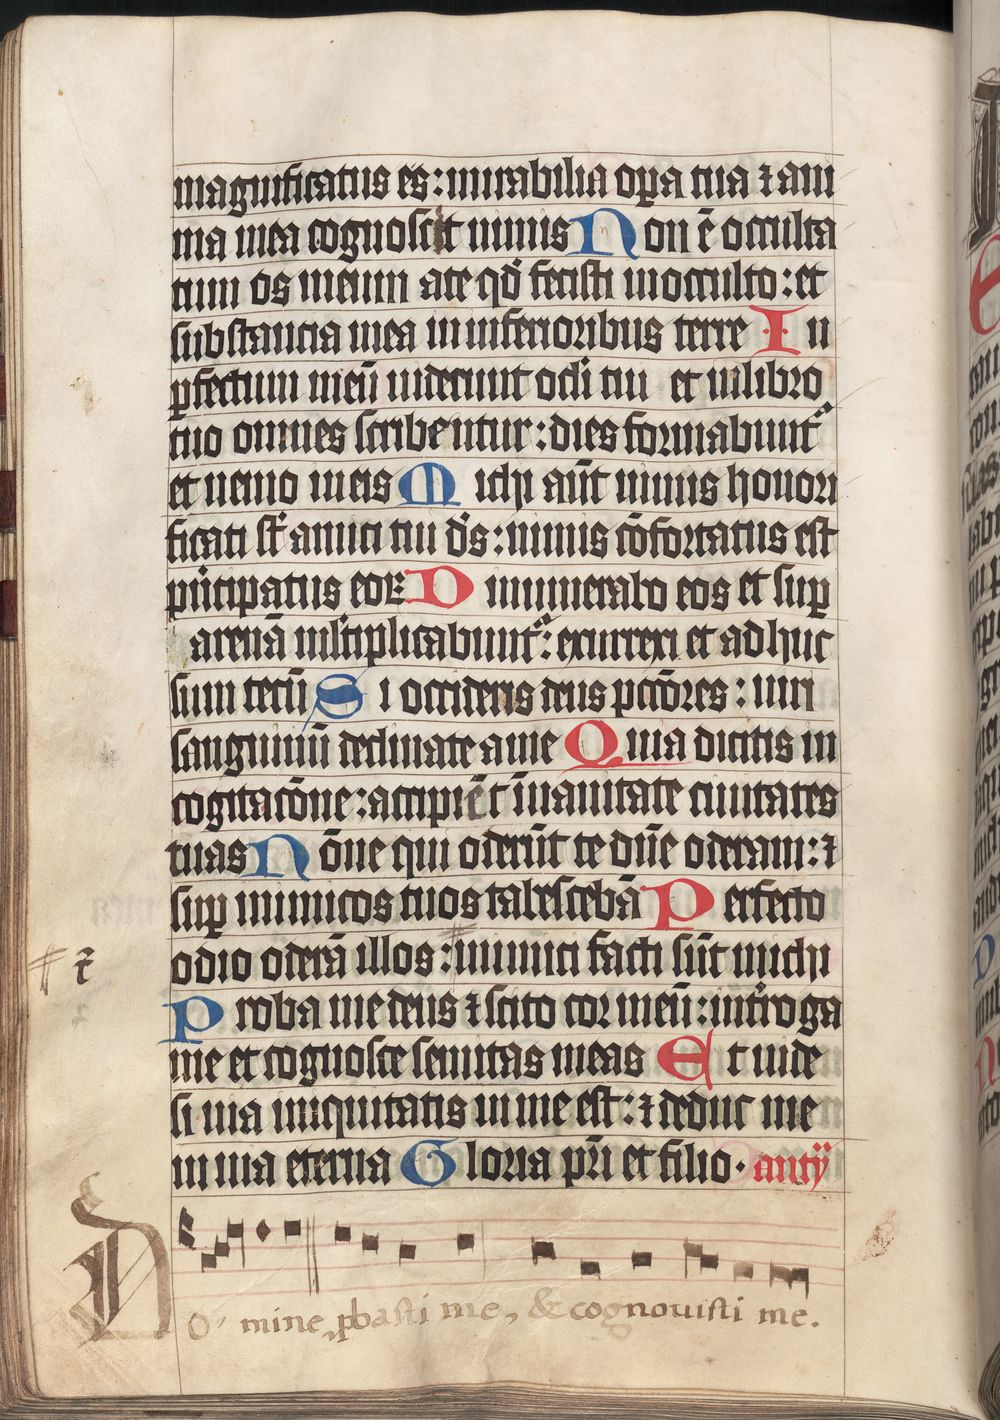 magnificatus es: mirabilia oꝑa tua ⁊ ani
ma mea cognoscit nimis Non ē occulta
tum os meum a te qđ fecisti inocculto: et
substancia mea in inferioribus terre In
ꝑfectum meū viderunt ocli tui et inlibro
tuo omnes scribentur: dies formabunt᷑
et nemo in eis Michi aūt nimis honori
ficati st᷑ amici tui ds̄: nimis cōfortatus est
pn̄cipatus eoꝝ Dinumerabo eos et suꝑ
arenā ml̓tiplicabunt᷑: exurrexi et adhuc
sum tecū Si occideris deus pctōres: viri
sanguinū declinate a me Quia dicitis in
cogitacōne: accipiēt ī vanitate ciuitates
tuas Nōne qui oderūt te dn̄e oderam: ⁊
suꝑ inimicos tuos tabescebā Perfecto
odio oderā illos: inimici facti sūt michi
Proba me deus ⁊ scito cor meū: int᷑roga
me et cognosce semitas meas Et vide
si via iniquitatis in me est: ⁊ deduc me
in via eterna Gloria pr̄i et filio. antÿ
Domine, ꝓbasti me, & cognouisti me.